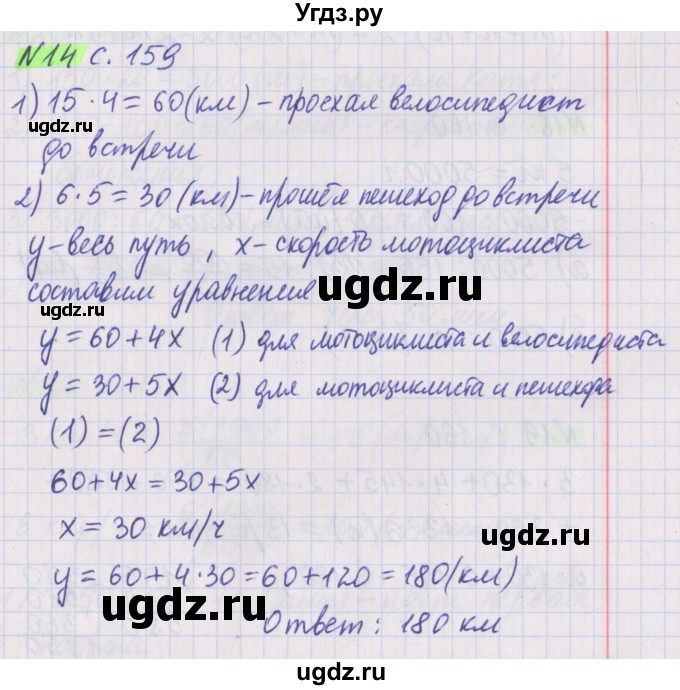 Угдз.ру
№14 с. 159
1) 15 · 4 = 60 (км) – проехал велосипедист
ugdz.ru ugdz.ru
до встречи
2) 6 · 5 = 30 (км) – прошёл пешеход до встречи
y – весь путь, x – скорость мотоциклиста
ugdz.ru
составим уравнения
y = 60 + 4x (1) для мотоциклиста и велосипедиста
y = 30 + 5x (2) для мотоциклиста и пешехода
ugdz.ru ugdz.ru
(1) = (2)
60 + 4x = 30 + 5x
x = 30 км/ч
ugdz.ru
y = 60 + 4 · 30 = 60 + 120 = 180 (км)
ugdz.ru ugdz.ru
Ответ: 180 км
ugdz.ru